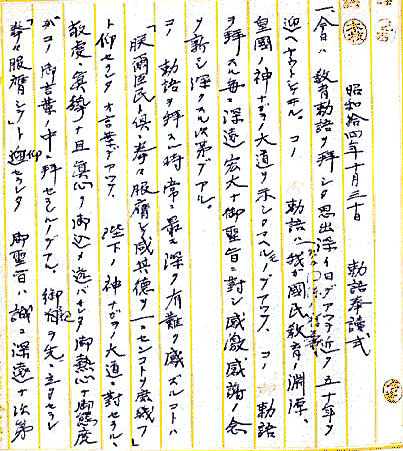 昭和拾四年十月三十日　勅語奉読式
一、今日ハ教育勅語ヲ拝シタ思出深イ日デアツテ近ク五十年ヲ
迎ヘヤウトシテヰル。コノ　勅語ハ我ガ国民教育ノ淵源、
皇国ノ神ナガラノ大道ヲ示シタマヘルモノデアツテ、コノ　勅語
ヲ拝スル毎ニ深遠宏大ナ御聖旨ニ対シ感激感謝ノ念
ヲ新シ深クスル次第デアル。
コノ　勅語ヲ拝スル時常ニ最モ深ク有難ク感ズルコトハ
「朕爾臣民ト倶ニ拳々服膺シテ咸其徳ヲ一ニセンコトヲ庶幾フ」
ト仰セラレタオ言葉デアツテ、陛下ノ神ナガラノ大道ニ対セラルヽ
敬虔ナ真摯ナ且真心ヲ御込メ遊バサレタ御熱心ナ御態度
ガコノ御言葉ノ中ニ拝セラルヽノデアル。御自ラ先ニ立タセラレ
拳々服膺シヤウト仰セラレタ　御聖旨ハ誠ニ深遠ナ次第